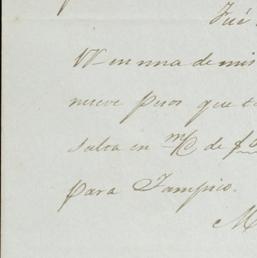 Fué
VV en una de mis
nueve pesos que
salva en m/C de $
para Tampico.
M